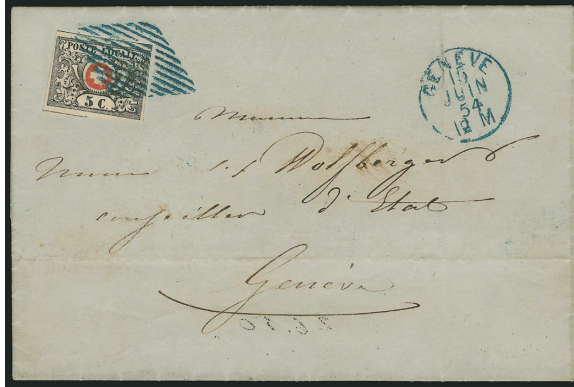 POSTE LOCALE
5 C.
GENÈVE
15
JUIN
54
12 M
Monsieur
Wolfsberger
conseiller d'Etat
Genève